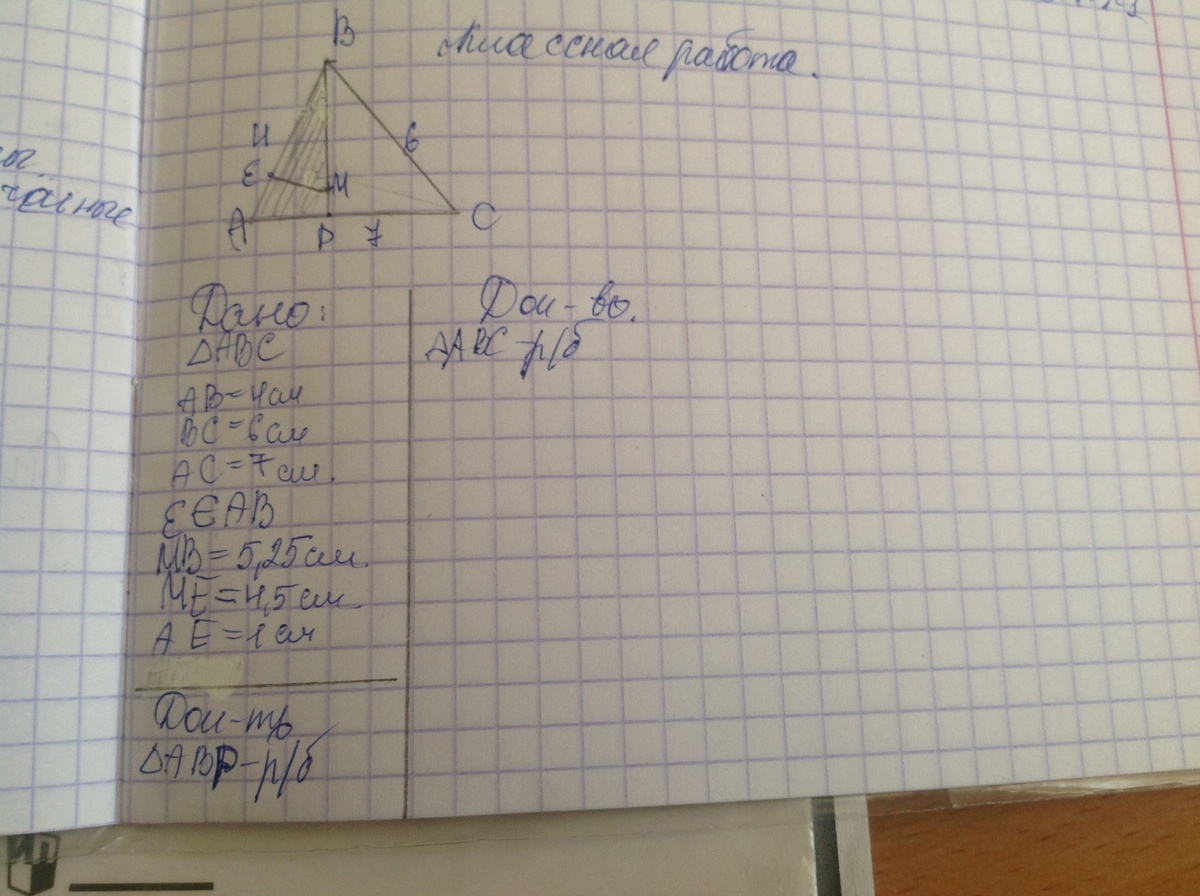 Классная работа.
B
4
6
E
M
A
P
7
C
чайные
Дано:
△ABC
AB=4см
BC=6см
AC=7см.
E∈AB
MB=5,25см
ME=4,5см
AE=1см
Док-ть
△ABP-р/б
Док-во.
△ABC-р/б